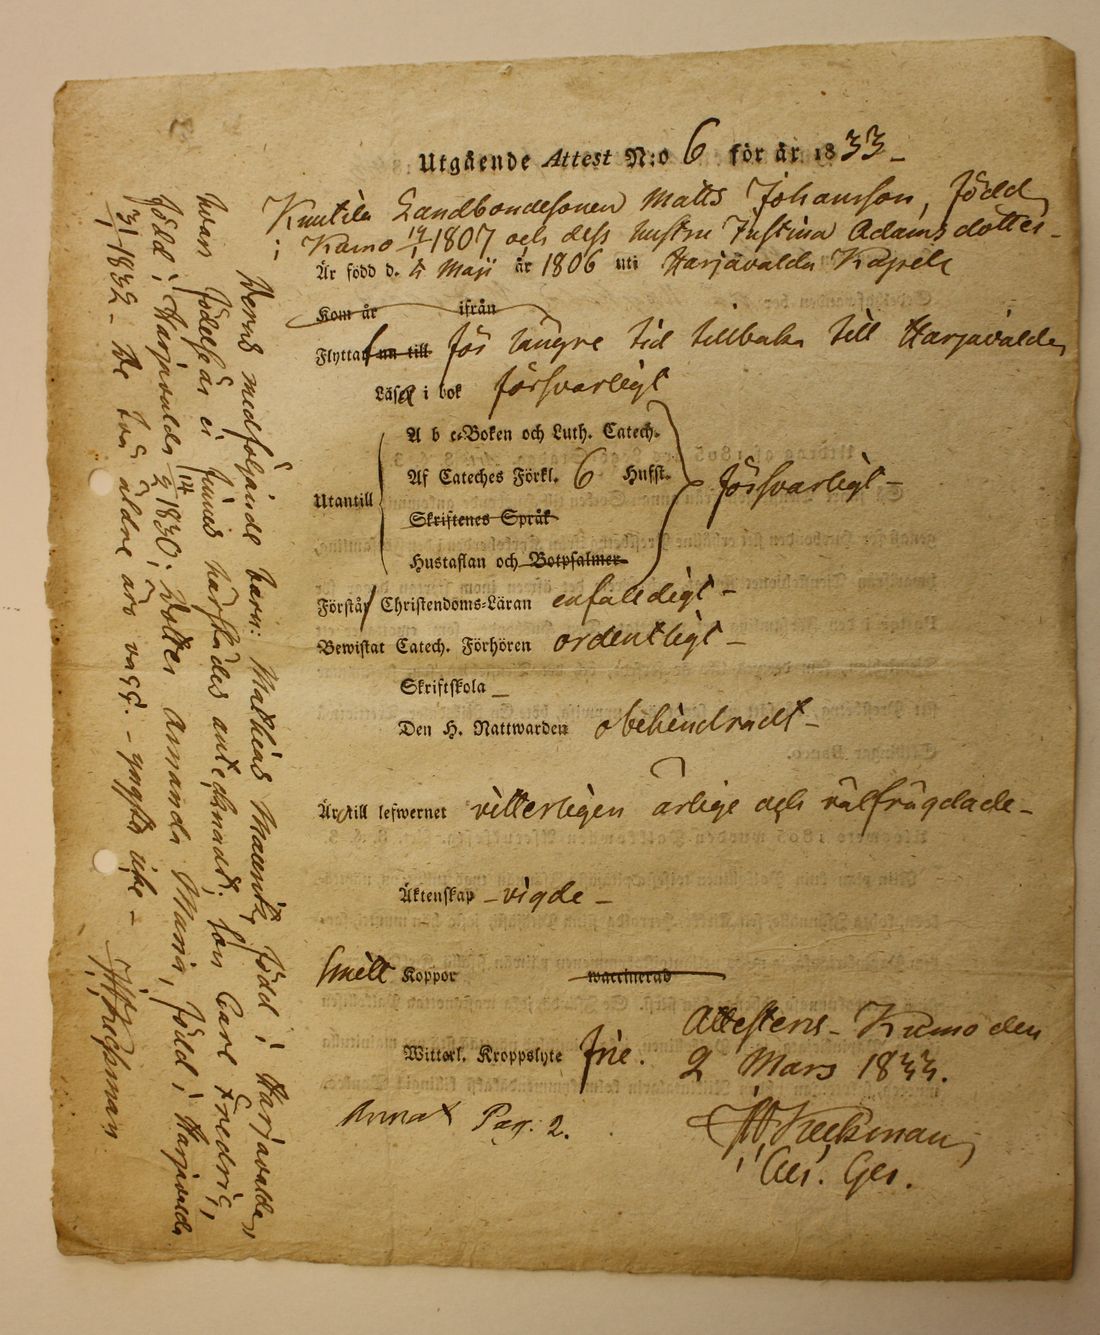 Utgående Attest N:o 6 för år 1833 –
Knutila Landbondesonen Matts Johansson, född
i Kumo 14/1 1807 och dess hustru Justina Adamsdotter –
Är född d. 4 Maji år 1806 uti Harjavalda Kapell
Kom år ifrån
Flyttar nu till för längre tid tillbaka till Harjavalda
Läsa i bok försvarligt
A b c-Boken och Luth. Catech.
Af Cateches Förkl. 6 Hufst. försvarligt –
Utantill
Skriftenes Språk
Hustaflan och Botpsalmer
Förstår Christendoms-Läran enfaldigt –
Bewistat Catech. Förhören ordentligt –
Skriftskola –
Den H. Nattwarden obehindradt –
Är till lefwernet vitterligen ärlige och välfrägdade –
Äktenskap – vigde –
Koppor waccinerad
Witterl. Kroppslyte frie.
Attesteris – Kumo den
2 Mars 1833.
Annat Pag. 2.
Deras medföljande barn: Mathias född i Harjavalda,
hvars födelseår ej finnes härstädes antecknadt; Son Carl Fredric,
född i Harjavalda 14/2 1830; Dotter Amanda Maria, född i Harjavalda
1832 – De två äldre äro vacc. – yngsta icke –